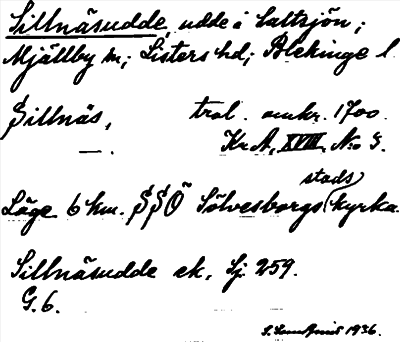 Sillnäsudde, udde i Saltsjön;
Mjällby sn; Listers hd; Blekinge l.
Sillnäs, trol. omkr. 1700.
—. Kr.A. XVIII. No 9.
Läge 6 km. SSÖ Sölvesborgs (stads) kyrka.
Sillnäsudde ek. Lj. 259.
G.6.
1936.